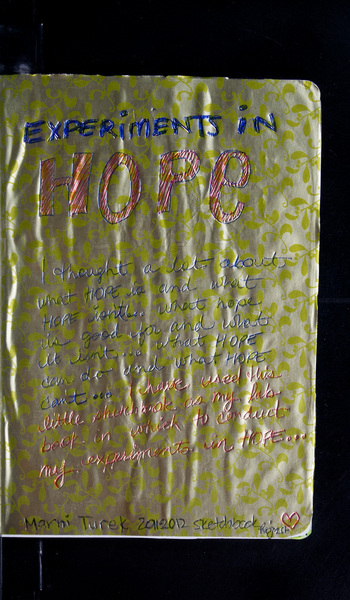 EXPERiMENTS iN
HOPe
I thought a lot about
what HOPE is and what
HOPE isnt... what hope
is good for and what
it isnt... what HOPE
can do and what HOPE
cant... I have used this
little sketchbook as my lab
book in which to conduct
my experiments in HOPE...
Marni Turek 2011 2012 sketchbook
Project